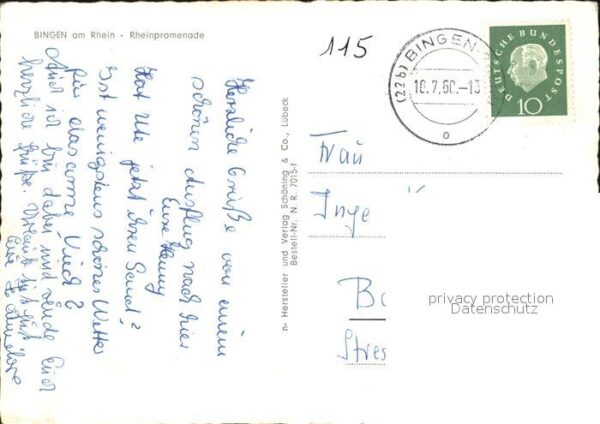 BINGEN am Rhein - Rheinpromenade
115
(22b) BINGEN
18.7.60.-13
DEUTSCHE BUNDESPOST
10
Herzliche Grüße von einem
schönen Ausflug nach hier
Eure Henny
Hat Ute jetzt ihren Senat?
Ist wenigstens schönes Wetter
für das arme Vieh?
Auch ich bin dabei und sende Euch
herzliche Grüße.
Eure
n- Hersteller und Verlag Schöning & Co., Lübeck
Bestell-Nr. N. R. 7015-f
Frau
Inge
privacy protection
Datenschutz
Stres